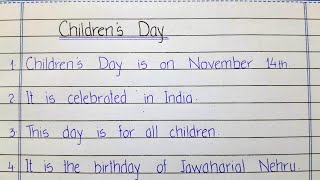 Children's Day
1. Children's Day is on November 14th.
2. It is celebrated in India.
3. This day is for all children.
4. It is the birthday of Jawaharlal Nehru.